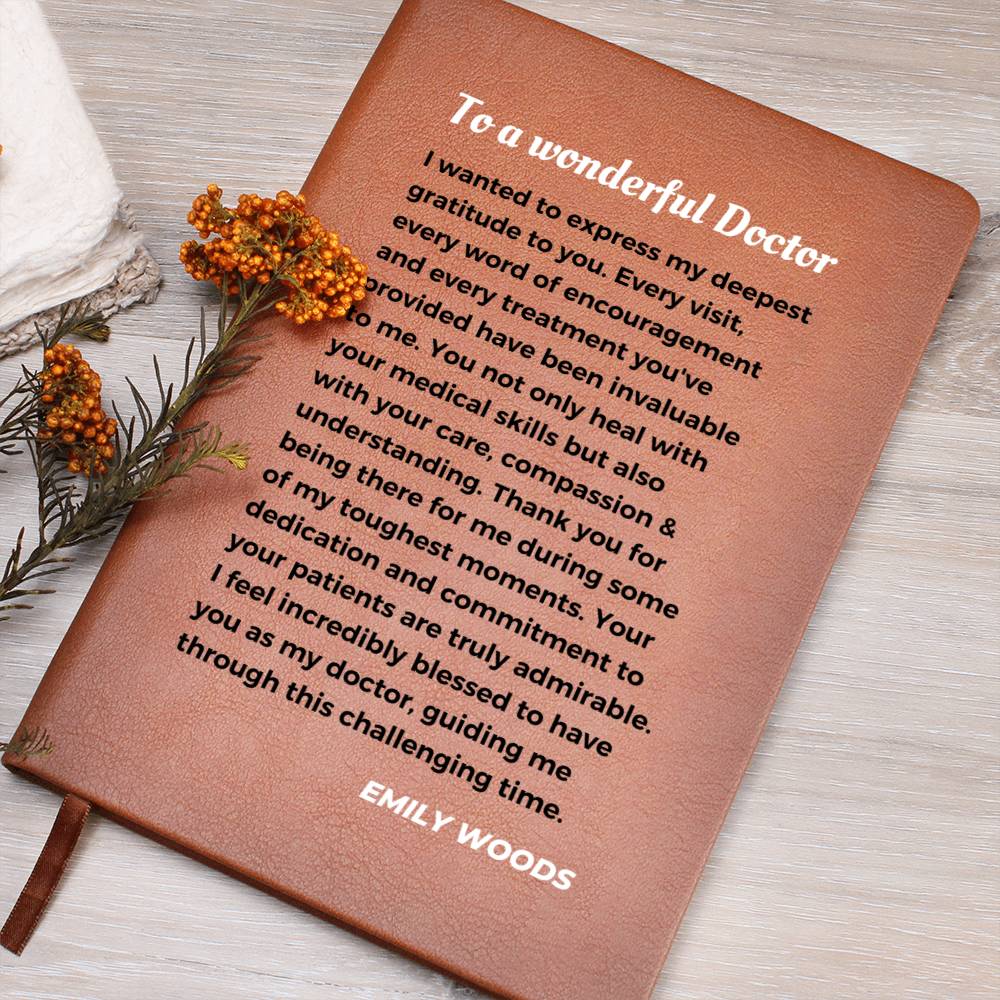 To a wonderful Doctor
I wanted to express my deepest
gratitude to you. Every visit,
every word of encouragement
and every treatment you've
provided have been invaluable
to me. You not only heal with
your medical skills but also
with your care, compassion &
understanding. Thank you for
being there for me during some
of my toughest moments. Your
dedication and commitment to
your patients are truly admirable.
I feel incredibly blessed to have
you as my doctor, guiding me
through this challenging time.
EMILY WOODS